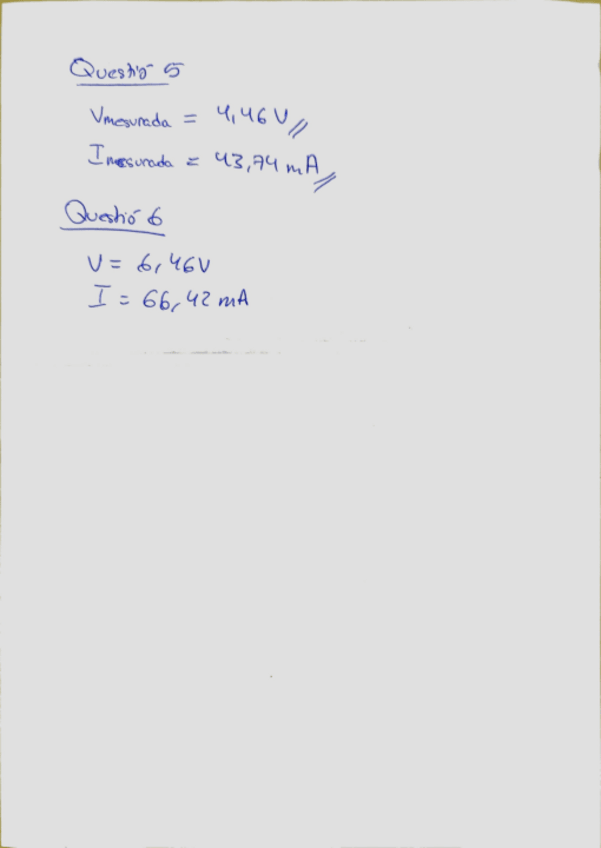 Questió 5
Vmesurada = 4,46 V
Imesurada = 43,74 mA
Questió 6
V = 6,46V
I = 66,42 mA